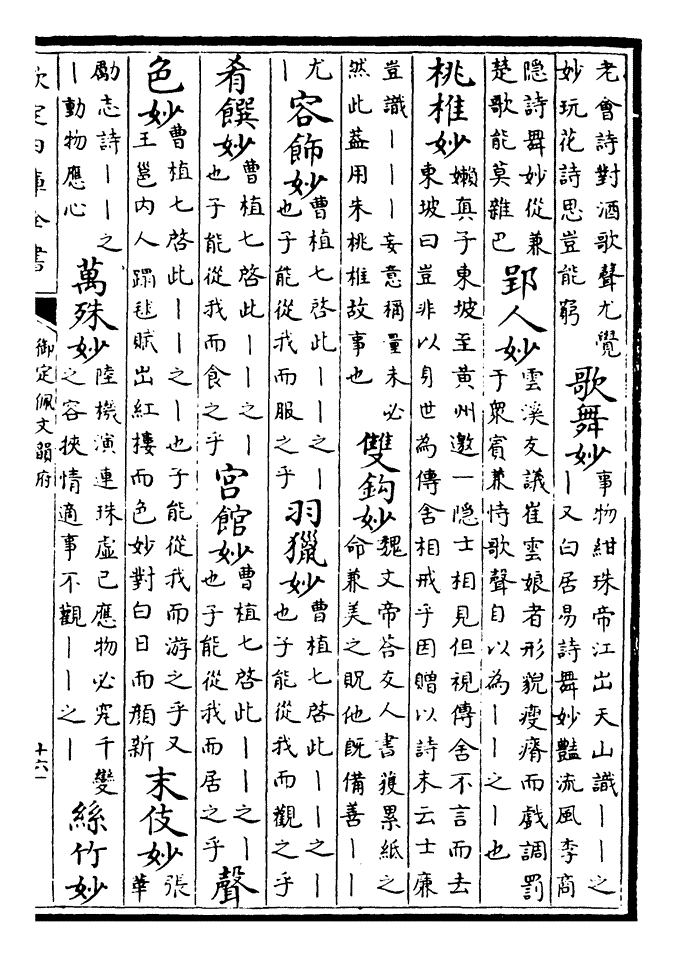 老會詩對酒歌聲尤覺
妙玩花詩思豈能窮
歌舞妙
事物紺珠帝江出天山識——之
—又白居易詩舞妙豔流風李商
隐詩舞妙從兼
楚歌能莫雜巴
郢人妙
雲溪友議崔雲娘者形貌瘦瘠而戲調罰
于衆賓兼恃歌聲自以為——之—也
桃椎妙
嬾真子東坡至黄州邀一隐士相見但視傳舍不言而去
東坡曰豈非以身世為傳舍相戒乎因贈以詩末云士廉
豈識———妄意稱量未必
然此葢用朱桃椎故事也
雙鈎妙
魏文帝荅友人書獲累紙之
命兼美之貺他既備善——
尤
—
容飾妙
曹植七啓此——之—
也子能從我而服之乎
羽獵妙
曹植七啓此——之—
也子能從我而觀之乎
肴饌妙
曹植七啓此——之—
也子能從我而食之乎
宫館妙
曹植七啓此——之—
也子能從我而居之乎
聲
色妙
曹植七啓此——之—也子能從我而游之乎又
王邕内人蹋毬賦出紅樓而色妙對白日而顔新
末伎妙
張
華
勵志詩——之
—動物應心
萬殊妙
陸機演連珠虚己應物必究千變
之容挾情適事不觀——之—
絲竹妙
欽定四庫全書
御定佩文韻府
十六